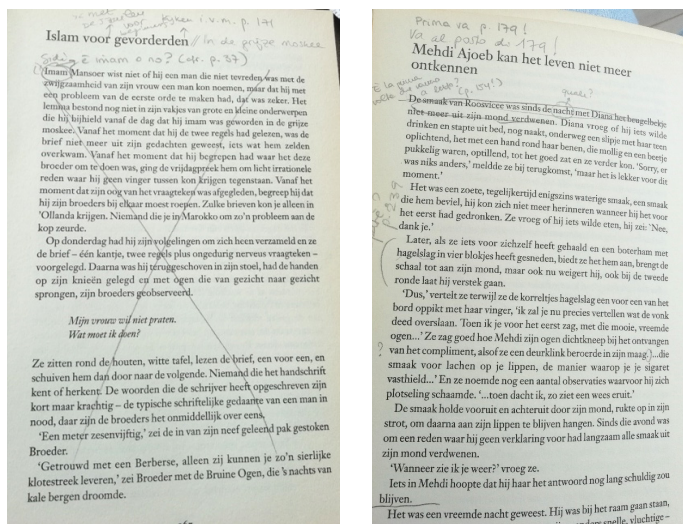 i.v.m. p. 171
Islam voor gevorderden // in de grijze moskee
È imam o no? (cfr. p. 37)
Imam Mansoer wist niet of hij een man die niet tevreden was met de
zwijgzaamheid van zijn vrouw een man kon noemen, maar dat hij met
een probleem van de eerste orde te maken had, dat was zeker. Het
lemma bestond nog niet in zijn vakjes van grote en kleine onderwerpen
die hij bijhield vanaf de dag dat hij imam was geworden in de grijze
moskee. Vanaf het moment dat hij de twee regels had gelezen, was de
brief niet meer uit zijn gedachten geweest, iets wat hem zelden
overkwam. Vanaf het moment dat hij begrepen had waar het deze
broeder om te doen was, ging de vrijdagpreek hem om licht irrationele
reden waar hij geen vinger tussen kon krijgen tegenstaan. Vanaf het
moment dat zijn oog van het vraagteken was afgegleden, begreep hij dat
hij zijn broeders bij elkaar moest roepen. Zulke brieven kon je alleen in
'Ollanda krijgen. Niemand die je in Marokko om zo'n probleem aan de
kop zeurde.
Op donderdag had hij zijn volgelingen om zich heen verzameld en ze
de brief – één kantje, twee regels plus ongedurig nerveus vraagteken –
voorgelegd. Daarna was hij teruggeschoven in zijn stoel, had de handen
op zijn knieën gelegd en met ogen die van gezicht naar gezicht
sprongen, zijn broeders geobserveerd.
Mijn vrouw wil niet praten.
Wat moet ik doen?
Ze zitten rond de houten, witte tafel, lezen de brief, een voor een, en
schuiven hem dan door naar de volgende. Niemand die het handschrift
kent of herkent. De woorden die de schrijver heeft opgeschreven zijn
kort maar krachtig – de typische schriftelijke gedaante van een man in
nood, daar zijn de broeders het onmiddellijk over eens.
'Een meter zesenvijftig,' zei de in van zijn neef geleend pak gestoken
Broeder.
'Getrouwd met een Berberse, alleen zij kunnen je zo'n sierlijke
klotestreek leveren,' zei Broeder met de Bruine Ogen, die 's nachts van
kale bergen droomde.
Prima va p. 179!
Va al posto di 179!
Mehdi Ajoeb kan het leven niet meer
ontkennen
(p. 154!)
quale?
De smaak van Roosvicee was sinds de nacht met Diana het beugelbekje
niet meer uit zijn mond verdwenen. Diana vroeg of hij iets wilde
drinken en stapte uit bed, nog naakt, onderweg een slipje met haar teen
oplichtend, het met een hand rond haar benen, die mollig en een beetje
pukkelig waren, optillend, tot het goed zat en ze verder kon. 'Sorry, er
was niks anders,' meldde ze bij terugkomst, 'maar het is lekker voor dit
moment.'
Het was een zoete, tegelijkertijd enigszins waterige smaak, een smaak
die hem beviel, hij kon zich niet meer herinneren wanneer hij het voor
het eerst had gedronken. Ze vroeg of hij iets wilde eten, hij zei: 'Nee,
dank je.'
Later, als ze iets voor zichzelf heeft gehaald en een boterham met
hagelslag in vier blokjes heeft gesneden, biedt ze het hem aan, brengt de
schaal tot aan zijn mond, maar ook nu weigert hij, ook bij de tweede
ronde laat hij verstek gaan.
'Dus,' vertelt ze terwijl ze de korreltjes hagelslag een voor een van het
bord oppikt met haar vinger, 'ik zal je nu precies vertellen wat de vonk
deed overslaan. Toen ik je voor het eerst zag, met die mooie, vreemde
ogen...' Ze zag goed hoe Mehdi zijn ogen dichtkneep bij het ontvangen
? van het compliment, alsof ze een deurklink beroerde in zijn maag.) '...die
smaak voor lachen op je lippen, de manier waarop je je sigaret
vasthield...' En ze noemde nog een aantal observaties waarvoor hij zich
plotseling schaamde. '...toen dacht ik, zo ziet een wees eruit.'
De smaak holde vooruit en achteruit door zijn mond, rukte op in zijn
strot, om daarna aan zijn lippen te blijven hangen. Sinds die avond was
om een reden waar hij geen verklaring voor had langzaam alle smaak uit
zijn mond verdwenen.
'Wanneer zie ik je weer?' vroeg ze.
Iets in Mehdi hoopte dat hij haar het antwoord nog lang schuldig zou
blijven.
Het was een vreemde nacht geweest. Hij was bij het raam gaan staan,
snelle, vluchtige –